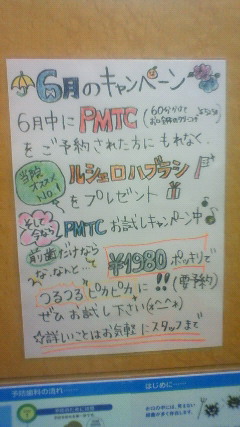 6月のキャンペーン
6月中に PMTC (60分かけて
をご予約された方に もれなく
当院オススメNO.1
ルシェロハブラシ
をプレゼント
そして今なら
PMTC お試しキャンペーン中♪
前歯だけなら
な、なんと… ¥1980 ポッキリで
つるつるピカピカに!! (要予約)
ぜひ お試し下さい(*^^*)
☆詳しいことはお気軽にスタッフまで
予防歯科の流れ
はじめに